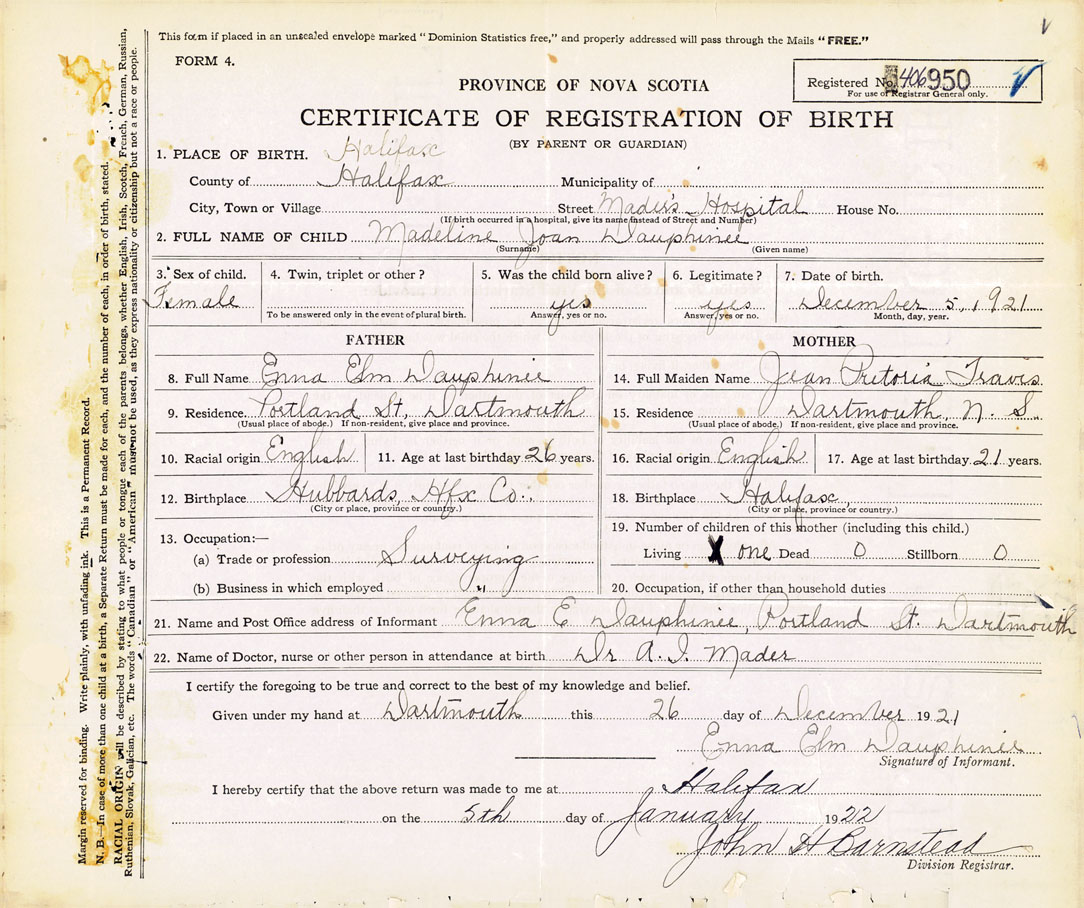 This form if placed in an unsealed envelope marked "Dominion Statistics free," and properly addressed will pass through the Mails "FREE."
FORM 4.
PROVINCE OF NOVA SCOTIA
Registered No. 406950
For use of Registrar General only.
CERTIFICATE OF REGISTRATION OF BIRTH
(BY PARENT OR GUARDIAN)
1. PLACE OF BIRTH. Halifax
County of Halifax Municipality of
City, Town or Village Street Mader's Hospital House No.
(If birth occurred in a hospital, give its name instead of Street and Number)
2. FULL NAME OF CHILD Madeline Joan Dauphinee
(Surname) (Given name)
3. Sex of child. 4. Twin, triplet or other? 5. Was the child born alive? 6. Legitimate? 7. Date of birth.
Female yes yes December 5, 1921
To be answered only in the event of plural birth. Answer, yes or no. Answer, yes or no. Month, day, year.
FATHER
8. Full Name Enna Elm Dauphinee
9. Residence. Portland St, Dartmouth
(Usual place of abode.) If non-resident, give place and province.
10. Racial origin English 11. Age at last birthday 26 years.
12. Birthplace Hubbards, Hfx Co..
(City or place, province or country.)
13. Occupation:—
(a) Trade or profession Surveying
(b) Business in which employed "
MOTHER
14. Full Maiden Name Jean Pretoria Travis
15. Residence Dartmouth, N. S.
(Usual place of abode.) If non-resident, give place and province.
16. Racial origin English 17. Age at last birthday 21 years.
18. Birthplace Halifax
(City or place, province or country.)
19. Number of children of this mother (including this child.)
Living X one Dead 0 Stillborn 0
20. Occupation, if other than household duties
21. Name and Post Office address of Informant Enna E Dauphinee, Portland St. Dartmouth
22. Name of Doctor, nurse or other person in attendance at birth Dr A. I. Mader
I certify the foregoing to be true and correct to the best of my knowledge and belief.
Given under my hand at Dartmouth this 26 day of December 1921
Enna Elm Dauphinee
Signature of Informant.
I hereby certify that the above return was made to me at Halifax
on the 5th day of January 1922
John H Barnstead
Division Registrar.
Margin reserved for binding. Write plainly, with unfading ink. This is a Permanent Record.
N. B.—In case of more than one child at a birth, a Separate Return must be made for each, and the number of each, in order of birth, stated.
RACIAL ORIGIN will be described by stating to what people or tongue each of the parents belongs, whether English, Irish, Scotch, French, German, Russian,
Ruthenian, Slovak, Galician, etc. The words "Canadian" or "American" must not be used, as they express nationality or citizenship but not a race or people.